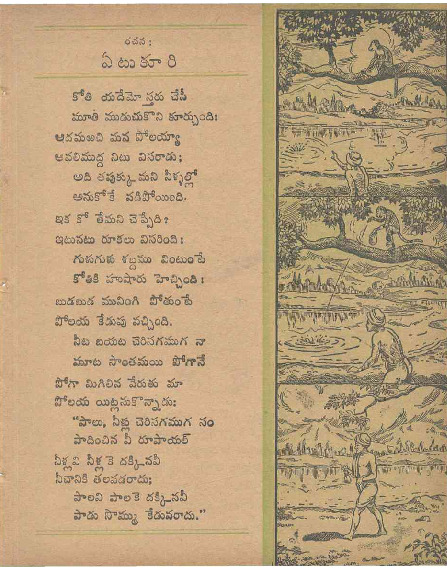 రచన:
ఏటుకూరి
కోతి యదేమో స్తరు చేసీ
మూతి ముడుచుకొని కూర్చుంది:
ఆదమఱచి మన పోలయ్యా
ఆవలిముద్ద నిటు విసరాడు;
అది తపుక్కుమని నీళ్ళల్లో
అనుకోకే పడిపోయింది.
ఇక కో తేమని చెప్పేది?
ఇటునటు రూకలు విసరింది:
గుబగుబ శబ్దము వింటుంటే
కోతికి హుషారు హెచ్చింది:
బుడబుడ మునింగి పోతుంటే
పోలయ కేడుపు వచ్చింది.
నీట బయట చెరిసగముగ నా
మూట సాంతమయి పోగానే
పోగా మిగిలిన వేరుతు మా
పోలయ యిట్లనుకొన్నాడు:
"పాలు, ఏళ్లు చెరిసగముగ సం
పాదించిన వీ రూపాయల్
నీళ్లవి నీళ్లకె దక్కినవీ
నీచానికి తలవడరాదు;
పాలవి పాలకె దక్కినవీ
పాడు సొమ్ము కేడువరాదు."